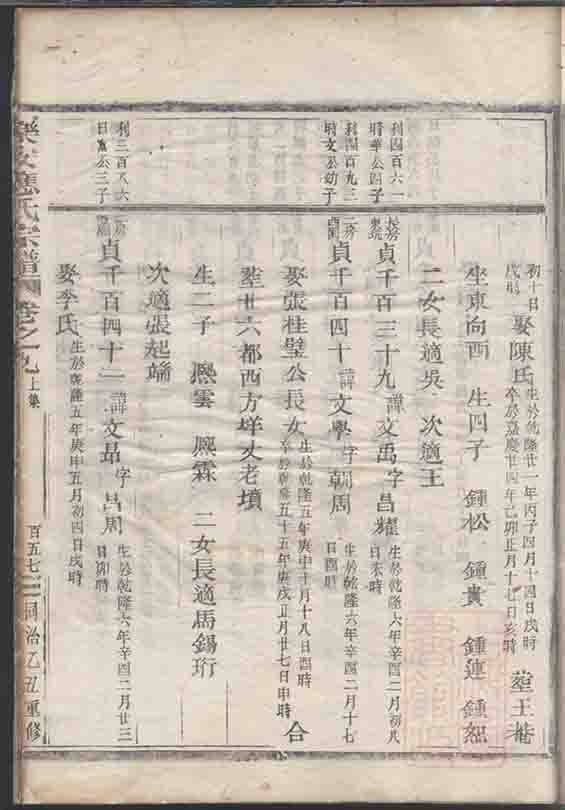 初十日戌時 娶陳氏 生於乾隆廿一年丙子四月十四日戌時 卒於嘉慶廿四年己卯正月十七日亥時 塟王
坐東向西 生四子 鍾松 鍾貴 鍾蓮 鍾
二女長適吳 次適王
利四百六一 晴華公四子
長房 貞千百三十九 諱文禹 字昌耀 生於乾隆六年辛酉二月初八日未時
利四百九三 晴文公幼子
二房 貞千百四十 諱文學 字朝周 生於乾隆六年辛酉二月十七日酉時
娶張桂璧公長女 生於乾隆五年庚申十月十八日酉時 卒於乾隆五十五年庚戌正月廿七日申時 合
塟廿六都西方垟丈老墳
生二子 熈雲 熈霖 二女長適馬錫珩
次適張起端
利三百八六 日 公三子
房 貞千百四十一 諱文昂 字昌周 生於乾隆六年辛酉二月廿三日卯時
娶李氏 生於乾隆五年庚申五月初四日戌時
樂安應氏宗譜 卷之九 上集 百五七 同治乙丑重修